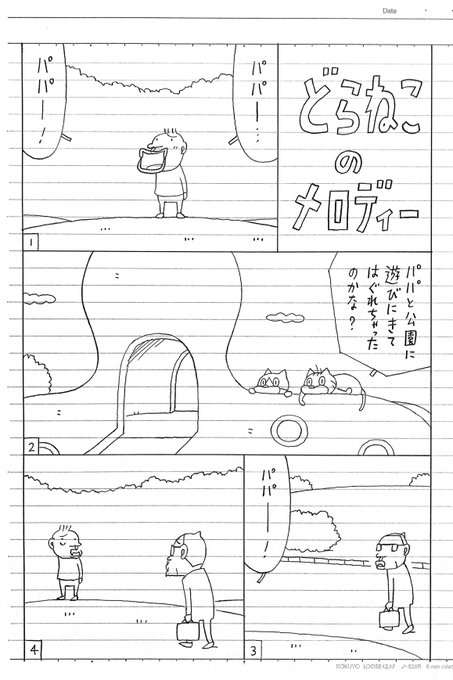 Date
どらねこ
の
メロディー
パパー…
パパーー！
1
パパと公園に
遊びにきて
はぐれちゃった
のかな？
2
パパーーー！
3
4
KOKUYO LOOSE-LEAF ノ-836B 6 mm ruled